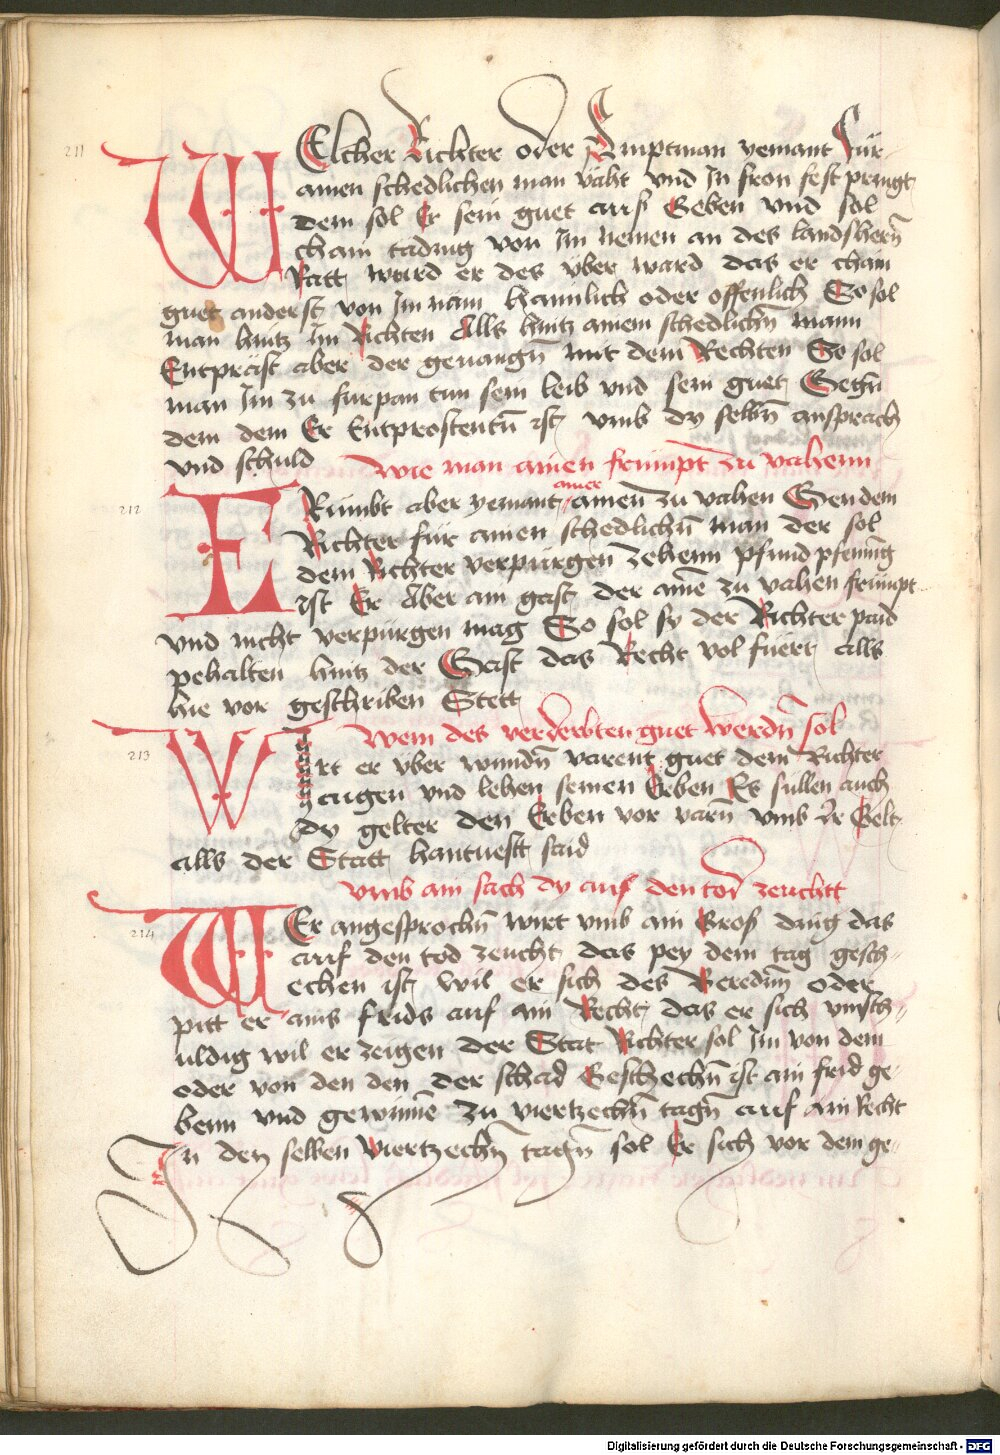 211
WElcher Richter oder Amptman yemant Für
ainen schedlichen man vaht vnd In fron fest pringt
dem sol Er sein guet auss Geben vnd sol
chain tading von Im nemen an des landsherñ
Ratt, wurd er des vber ward das er chain
guet anderst von Im näm haimlich oder offenlich So sol
man hintz Im Richten Alls hintz ainem schedlichñ mann
Entpräst aber der geuangñ mit dem Rechten So sol
man Im zu fürpan tun sein leib vnd sein guet Gegñ
dem dem Er Entprostentñ ist vmb dy selbñ ansprach
vnd schuld Wie man ainen frümpt zu vahenn
212
ERümbt aber yemant ainer ainen zu vahen Gen dem
Richter für ainen schedlichñ man der sol
dem Richter verpürgen zehenn pfund pfening
ist Er Aber ain gast der aine zu vahen frümpt
vnd nicht verpürgen mag So sol sy der Richter paid
pehalten hintz der Gast das Recht vol füert alls
hie vor geschriben Stett
Wem des verderbten guet werdñ sol
213
Wirt er vber wundñ varent guet dem Richter
aigen vnd lehen seinen Erben Es süllen auch
dy gelter den Erben vor varñ vmb Ir Gelt
alls der Statt hantuest said
vmb ain sach dy auf den tod zeuchtt
214
WEr angesprochñ wirt vmb ain Gros ding das
auf den tod zeucht das pey dem tag gesch-
echen ist wil er sich des Beredñ oder
pitt er ains frids auf ain Recht das er sich vnsch-
uldig wil erzeigen der Stat Richter sol Im von dem
oder von den den der schad Geschechñ ist ain frid ge-
benn vnd gewinnē zu viertzechñ tagñ auf ain Recht
In den selben viertzechñ tagñ sol Er sich vor dem ge-
Digitalisierung gefördert durch die Deutsche Forschungsgemeinschaft - DFG